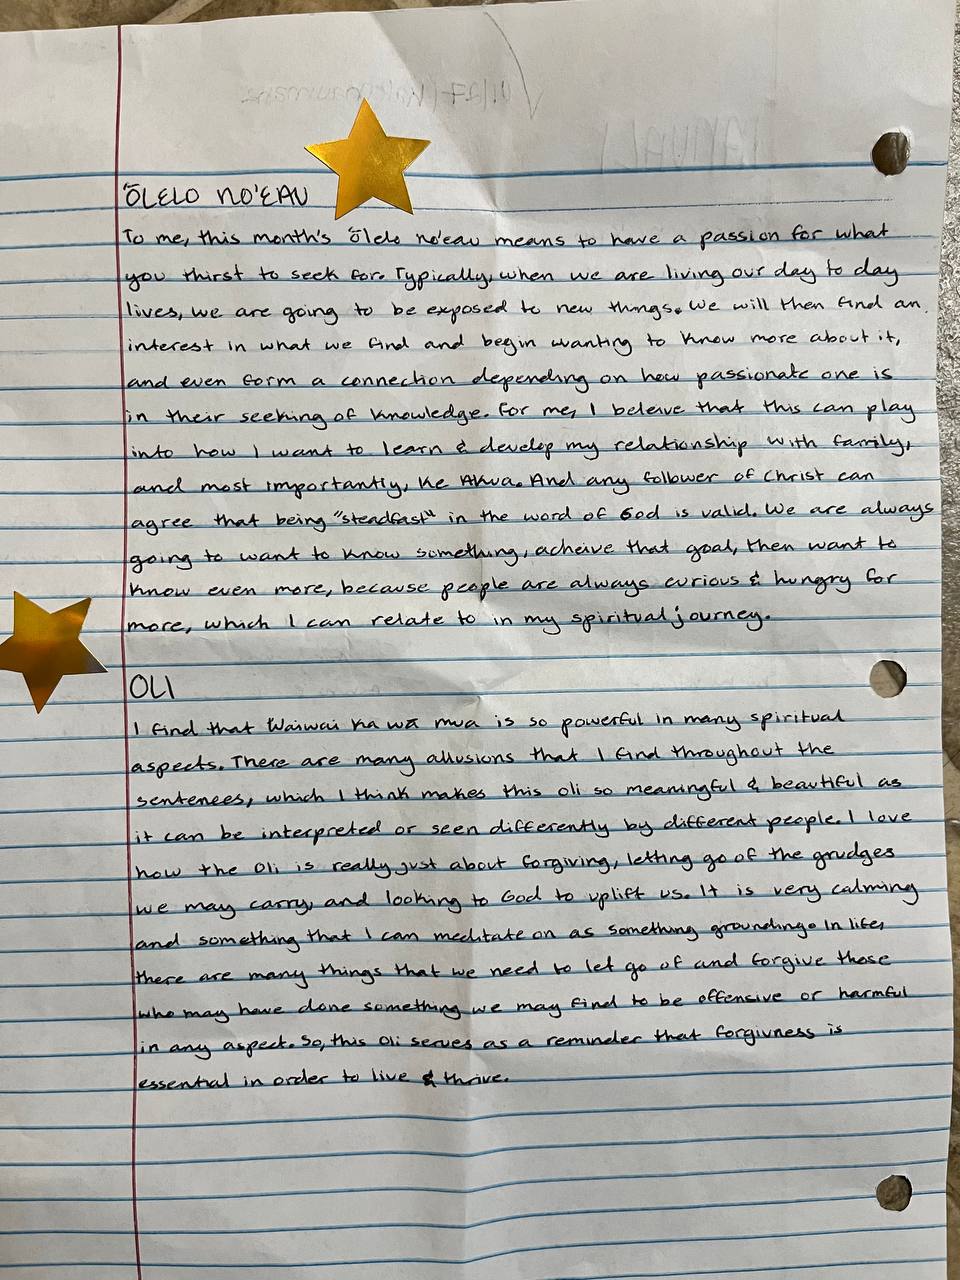 ʻŌLELO NO'EAU
To me, this month's ʻŌlelo no'eau means to have a passion for what
you thirst to seek for. Typically, when we are living our day to day
lives, we are going to be exposed to new things. We will then find an
interest in what we find and begin wanting to know more about it,
and even form a connection depending on how passionate one is
in their seeking of knowledge. For me, I beleive that this can play
into how I want to learn & develop my relationship with family,
and most importantly, Ke Akua. And any follower of Christ can
agree that being "steadfast" in the word of God is valid. We are always
going to want to know something, acheive that goal, then want to
know even more, because people are always curious & hungry for
more, which I can relate to in my spiritual journey.
OLI
I find that Waiwai Ka wā mua is so powerful in many spiritual
aspects. There are many allusions that I find throughout the
sentences, which I think makes this oli so meaningful & beautiful as
it can be interpreted or seen differently by different people. I love
how the Oli is really just about forgiving, letting go of the grudges
we may carry, and looking to God to uplift us. It is very calming
and something that I can meditate on as something grounding. In life,
there are many things that we need to let go of and forgive those
who may have done something we may find to be offensive or harmful
in any aspect. So, this Oli serves as a reminder that forgivness is
essential in order to live & thrive.